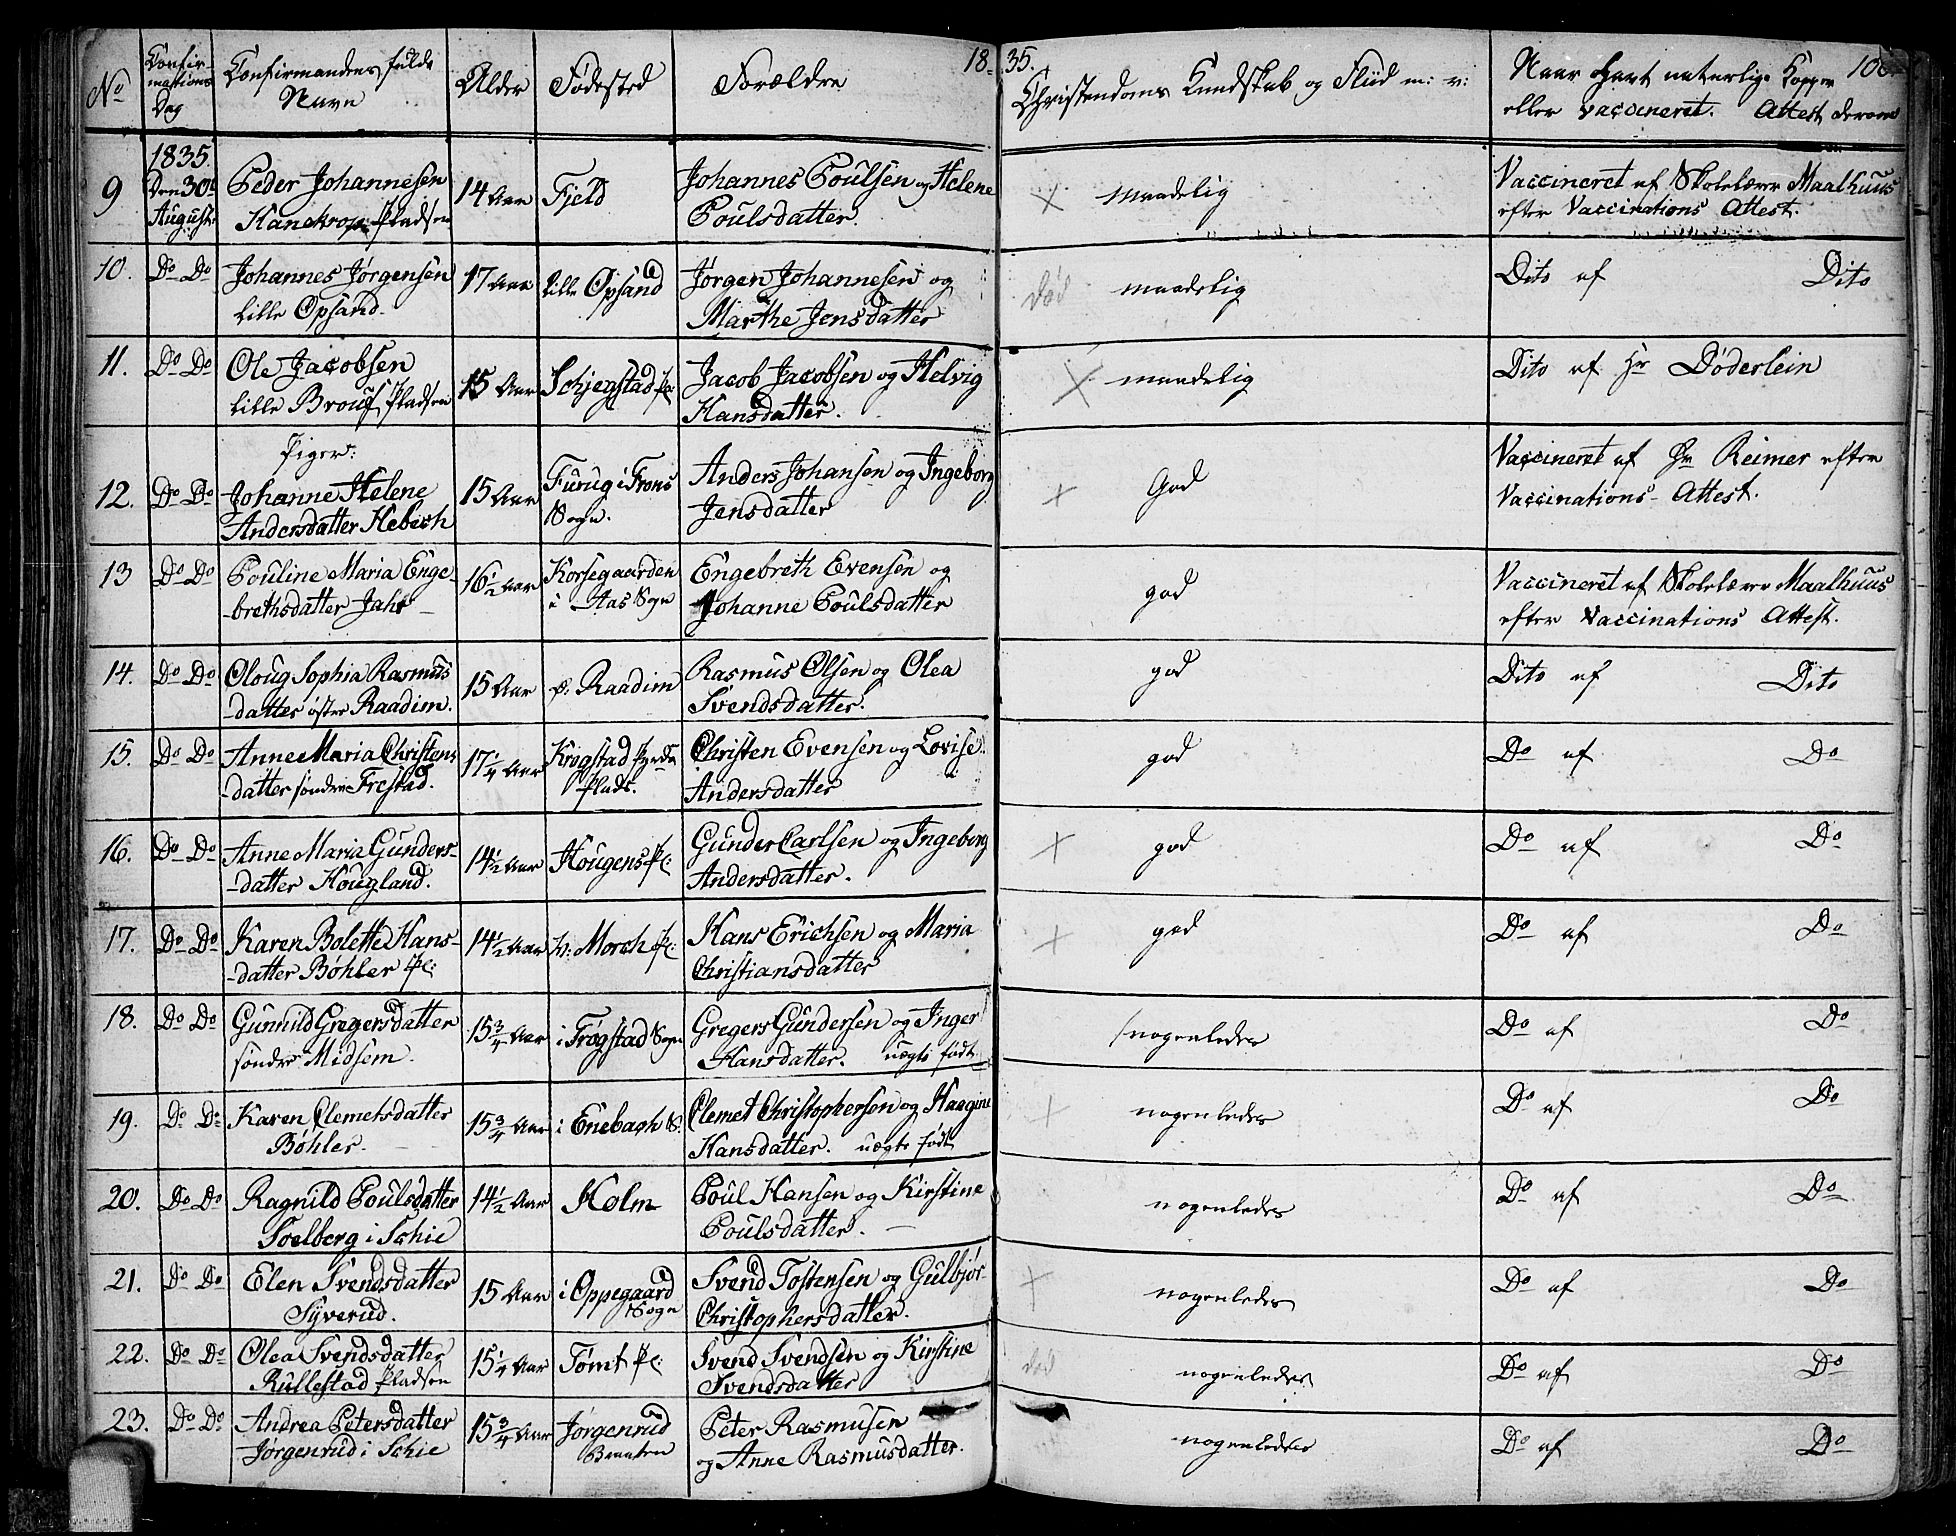 18 35. 100
No Confirmations Dag Confirmandens fulde Navn Alder Fødested Forældre Christendoms Kundskab og Flid m: v: Naar havt naturlige Kopper eller vaccineret. Attest derom
1835. Den 30te August
9 Peder Johannesen Pladsen 14 Aar Fjeld Johannes Poulsen og Helene Poulsdatter. + maadelig Vaccineret af Skolelærer Maalhuus efter Vaccinations Attest.
10. Do Do Johannes Jørgensen lille Opsand. 17 Aar lille Opsand Jørgen Johannesen og Marthe Jensdatter død maadelig Dito af Dito
11. Do Do Ole Jacobsen lille Pladsen 15 Aar Schjegstad Pl: Jacob Jacobsen og Helvig Hansdatter. + maadelig Dito af Hr Døderlein
Piger:
12. Do Do Johanne Helene Andersdatter Kebech 15 Aar Furug i Frons Sogn. Anders Johansen og Ingeborg Jensdatter + God Vaccineret af Hr Reimer efter Vaccinations Attest.
13 Do Do Pouline Maria Enge-brethsdatter Jahr 16 1/2 Aar Korsegaarden i Aas Sogn Engebreth Evensen og Johanne Poulsdatter god Vaccineret af Skolelærer Maalhuus efter Vaccinations Attest.
14. Do Do Oloug Sophia Rasmus-datter østre Raadim. 15 Aar ø: Raadim Rasmus Olsen og Olea Svendsdatter. god Dito af Dito
15. Do Do Anne Maria Christens-datter søndre Frestad. 17 1/4 Aar Krogstad Plads. Christen Evensen og Lovise Andersdatter god Do af Do
16. Do Do Anne Maria Gunders-datter Hougland. 14 1/2 Aar Hougens Pl: Gunder Carlsen og Ingeborg Andersdatter. + god Do af Do
17. Do Do Karen Bolette Hans-datter Bøhler Pl: 14 1/2 Aar v: Morch Pl: Hans Erichsen og Maria Christiansdatter + god Do af Do
18. Do Do Gunnild Gregersdatter søndre Midsem. 15 3/4 Aar i Frøgstad Sogn Gregers Gundersen og Inger Hansdatter. uægte født nogenledes Do af Do
19. Do Do Karen Clemetsdatter Bøhler. 15 3/4 Aar i Enebach S: Clemet Christophersen og Haagine Hansdatter. uægte født + nogenledes Do af Do
20. Do Do Ragnild Poulsdatter Soelberg i Schie 14 1/2 Aar Holm Poul Hansen og Kirstine Poulsdatter. nogenledes Do af Do
21. Do Do Elen Svendsdatter Syverud. 15 Aar i Oppegaard Sogn Svend Tostensen og Gulbjør Christophersdatter. + nogenledes Do af Do
22. Do Do Olea Svendsdatter Rullestad Pladsen 15 1/4 Aar Tømt Pl: Svend Svendsen og Kirstine Svendsdatter død nogenledes Do af Do
23. Do Do Andrea Petersdatter Jørgenrud i Schie 15 3/4 Aar Jørgenrud Braaten Peter Rasmusen og Anne Rasmusdatter. nogenledes Do af Do